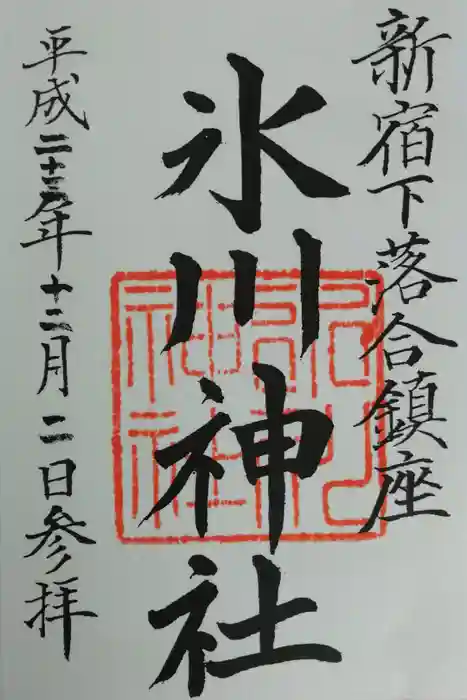 新宿下落合鎮座
氷川神社
平成二十三年十二月二日参拝